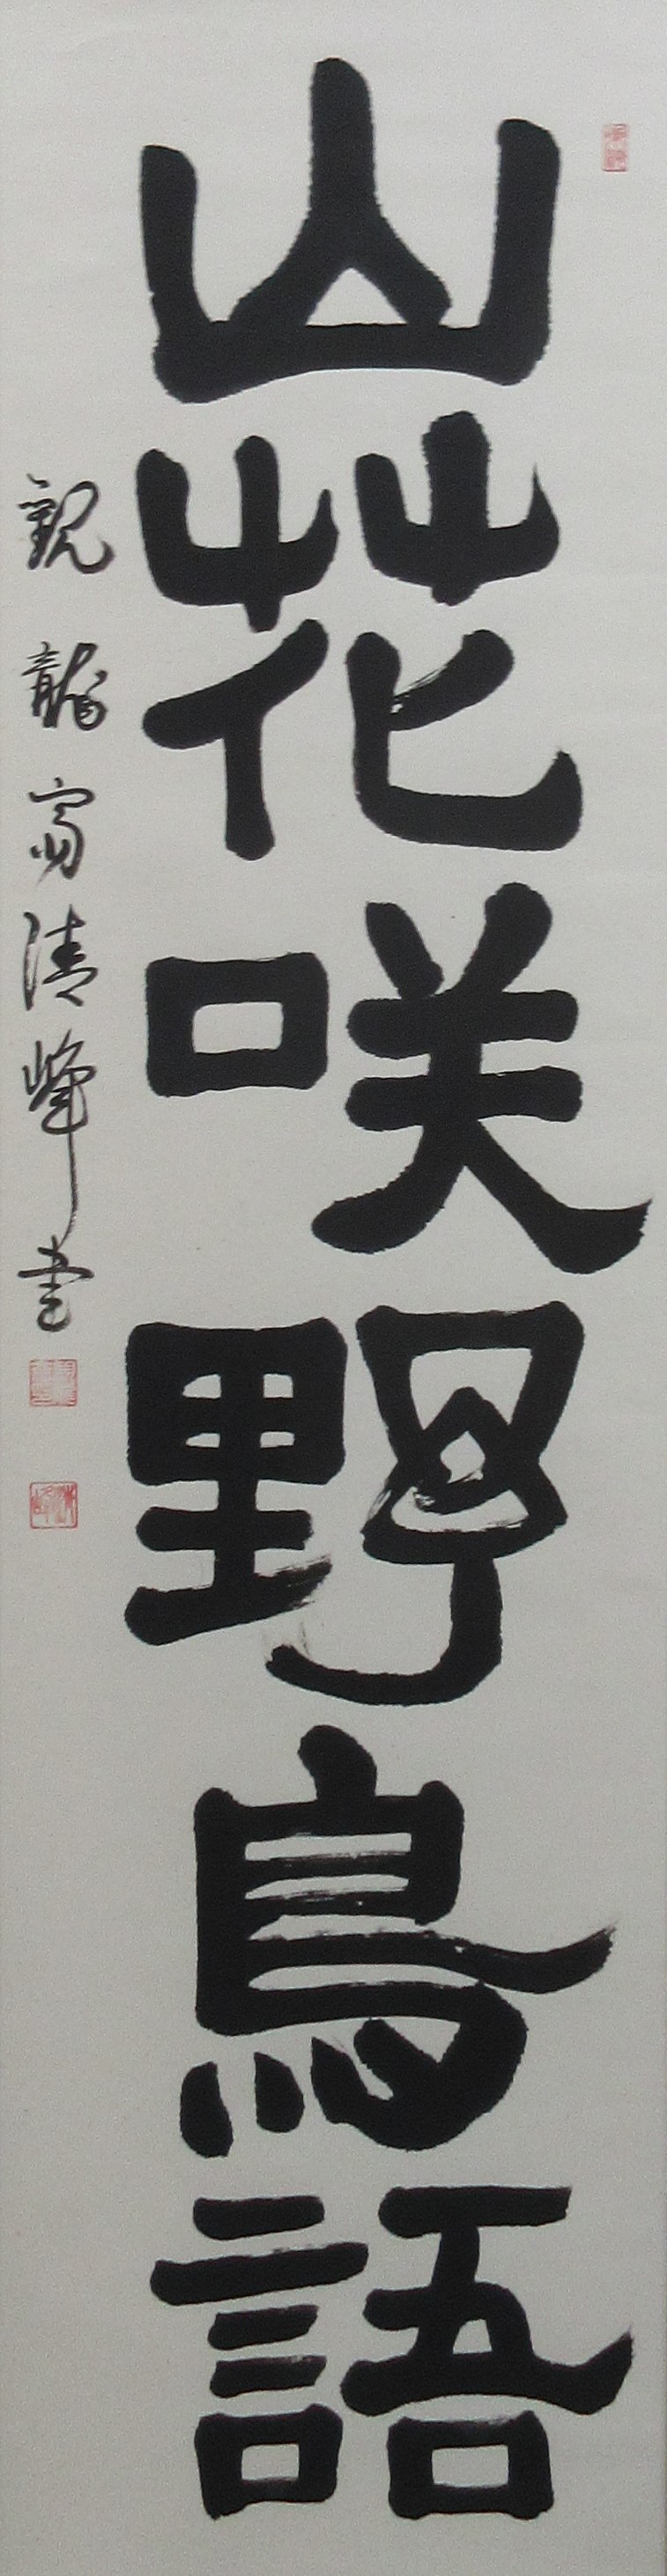 山花咲野鳥語
觀龍窩清峰書